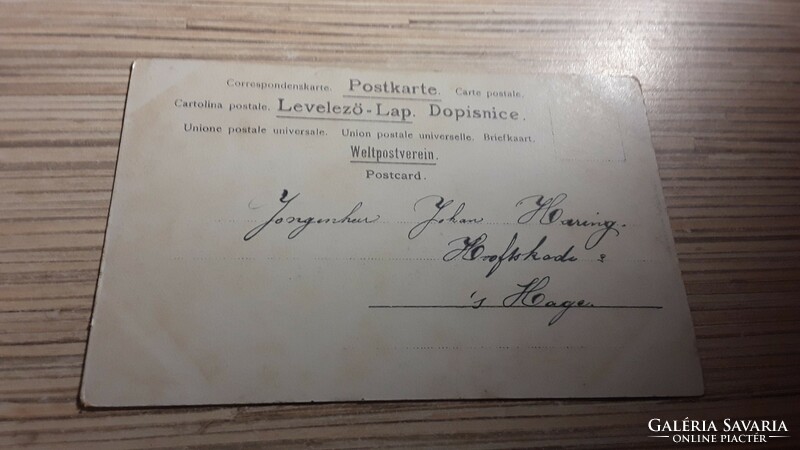 Correspondenskarte. Postkarte. Carte postale.
Cartolina postale. Levelező-Lap. Dopisnice.
Unione postale universale. Union postale universelle. Briefkaart.
Weltpostverein.
Postcard.
Jongenheer Johan Haring.
's Hage.
GALÉRIA SAVARIA
ONLINE PIACTÉR